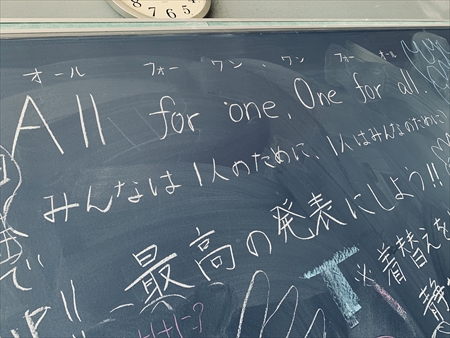 8 7 6 5 4
オール フォー ワン・ワン フォー オール
All for one, One for all.
みんなは1人のために、1人はみんなのために
最高の発表にしよう!!
着替えを
静